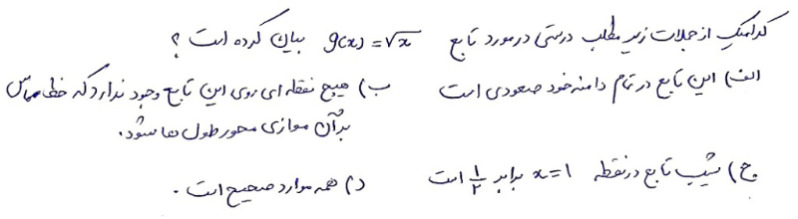 کدامیک از جملات زیر مطلب درستی در مورد تابع g(x) = √x بیان کرده است ؟
الف) این تابع در تمام دامنه خود صعودی است ب) هیچ نقطه ای روی این تابع وجود ندارد که خط مماس
بر آن موازی محور طول ها شود.
ج) شیب تابع در نقطه x=1 برابر ۱/۲ است د) همه موارد صحیح است .